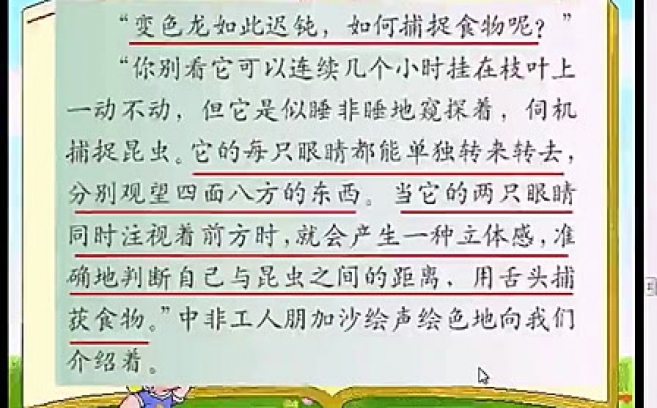 “变色龙如此迟钝，如何捕捉食物呢？”
“你别看它可以连续几个小时挂在枝叶上
一动不动，但它是似睡非睡地窥探着，伺机
捕捉昆虫。它的每只眼睛都能单独转来转去，
分别观望四面八方的东西。当它的两只眼睛
同时注视着前方时，就会产生一种立体感，准
确地判断自己与昆虫之间的距离，用舌头捕
获食物。”中非工人朋加沙绘声绘色地向我们
介绍着。